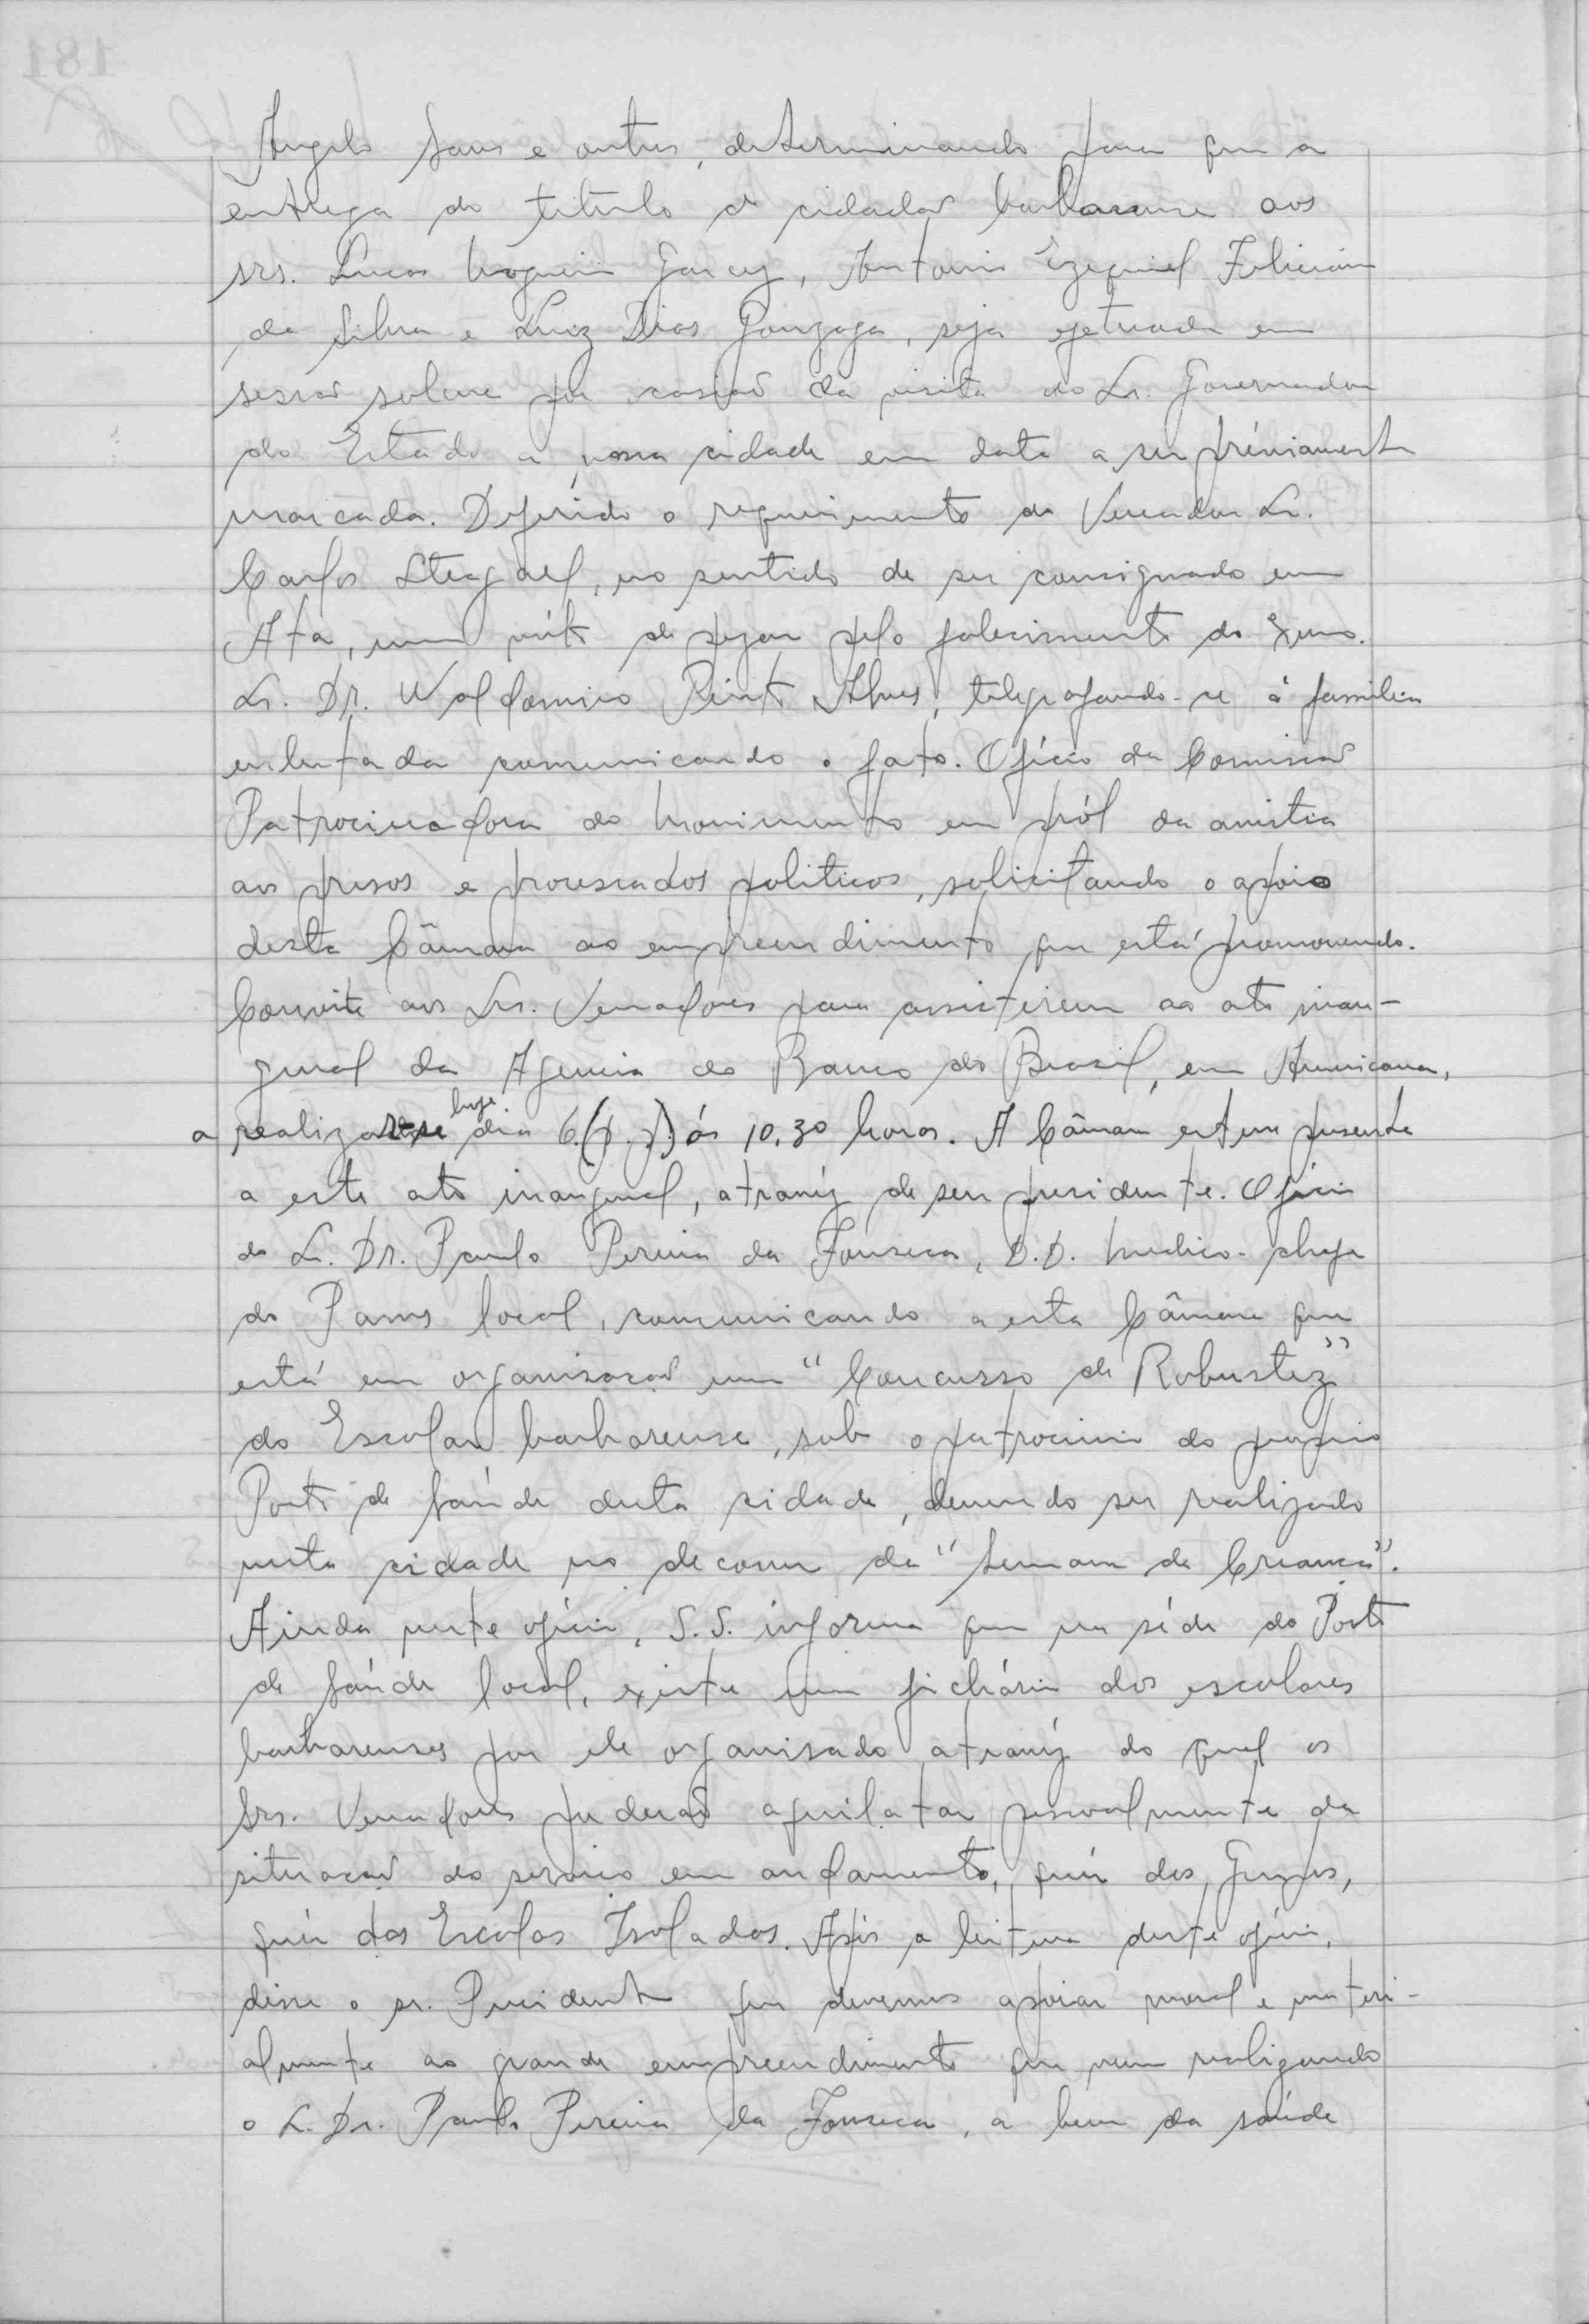 Angelo Sans e outros, determinando para que a
entrega do titulo de cidadão barbarense aos
srs. Lucas Nogueira Garcez, Antonio Ezequiel Feliciano
da Silva e Luiz Dias Gonzaga, seja efetuada em
sessão solene por ocasião da visita do Sr. Governador
do Estado a nossa cidade em data a ser préviamente
marcada. Deferido o requerimento do Vereador Sr.
Carlos Steagall, no sentido de ser consignado em
Ata, um vóto de pezar pelo falecimento do Exmo.
Sr. Dr. Waldomiro Pinto Alves, telegrafando-se á familia
enlutada comunicando o fato. Ofício da Comissão
Patrocinadora do Movimento em pról da anistia
aos presos e processados politicos, solicitando o apoio
desta Câmara ao empreendimento que está promovendo.
Convite aos Srs. Vereadores para assistirem ao ato inau-
gural da Agencia do Banco do Brasil, em Americana,
a realizar-se hoje. dia 6.(p.p.) ás 10,30 horas. A Câmara esteve presente
a este ato inaugural, atravéz de seu presidente. Oficio
do Sr. Dr. Paulo Pereira da Fonseca, D.D. Medico-chefe
do Pams local, comunicando a esta Câmara que
está em organisação um "Concurso de Robustez"
do Escolar barbarense, sob o patrocinio do proprio
Posto de Saúde desta cidade, devendo ser realizado
nesta cidade no decorrer da "Semana da Criança".
Ainda neste oficio, S.S. informa que na séde do Posto
de Saúde local, existe um fichário dos escolares
barbarenses por ele organisado atravéz do qual os
Srs. Vereadores poderão aquilatar pessoalmente da
situação do serviço em andamento, quér dos Grupos,
quér das Escolas Isoladas. Após a leitura deste oficio,
disse o sr. Presidente que devemos apoiar moral e materi-
almente ao grande empreendimento que vem realizando
o Sr. Dr. Paulo Pereira da Fonseca, a bem da saúde